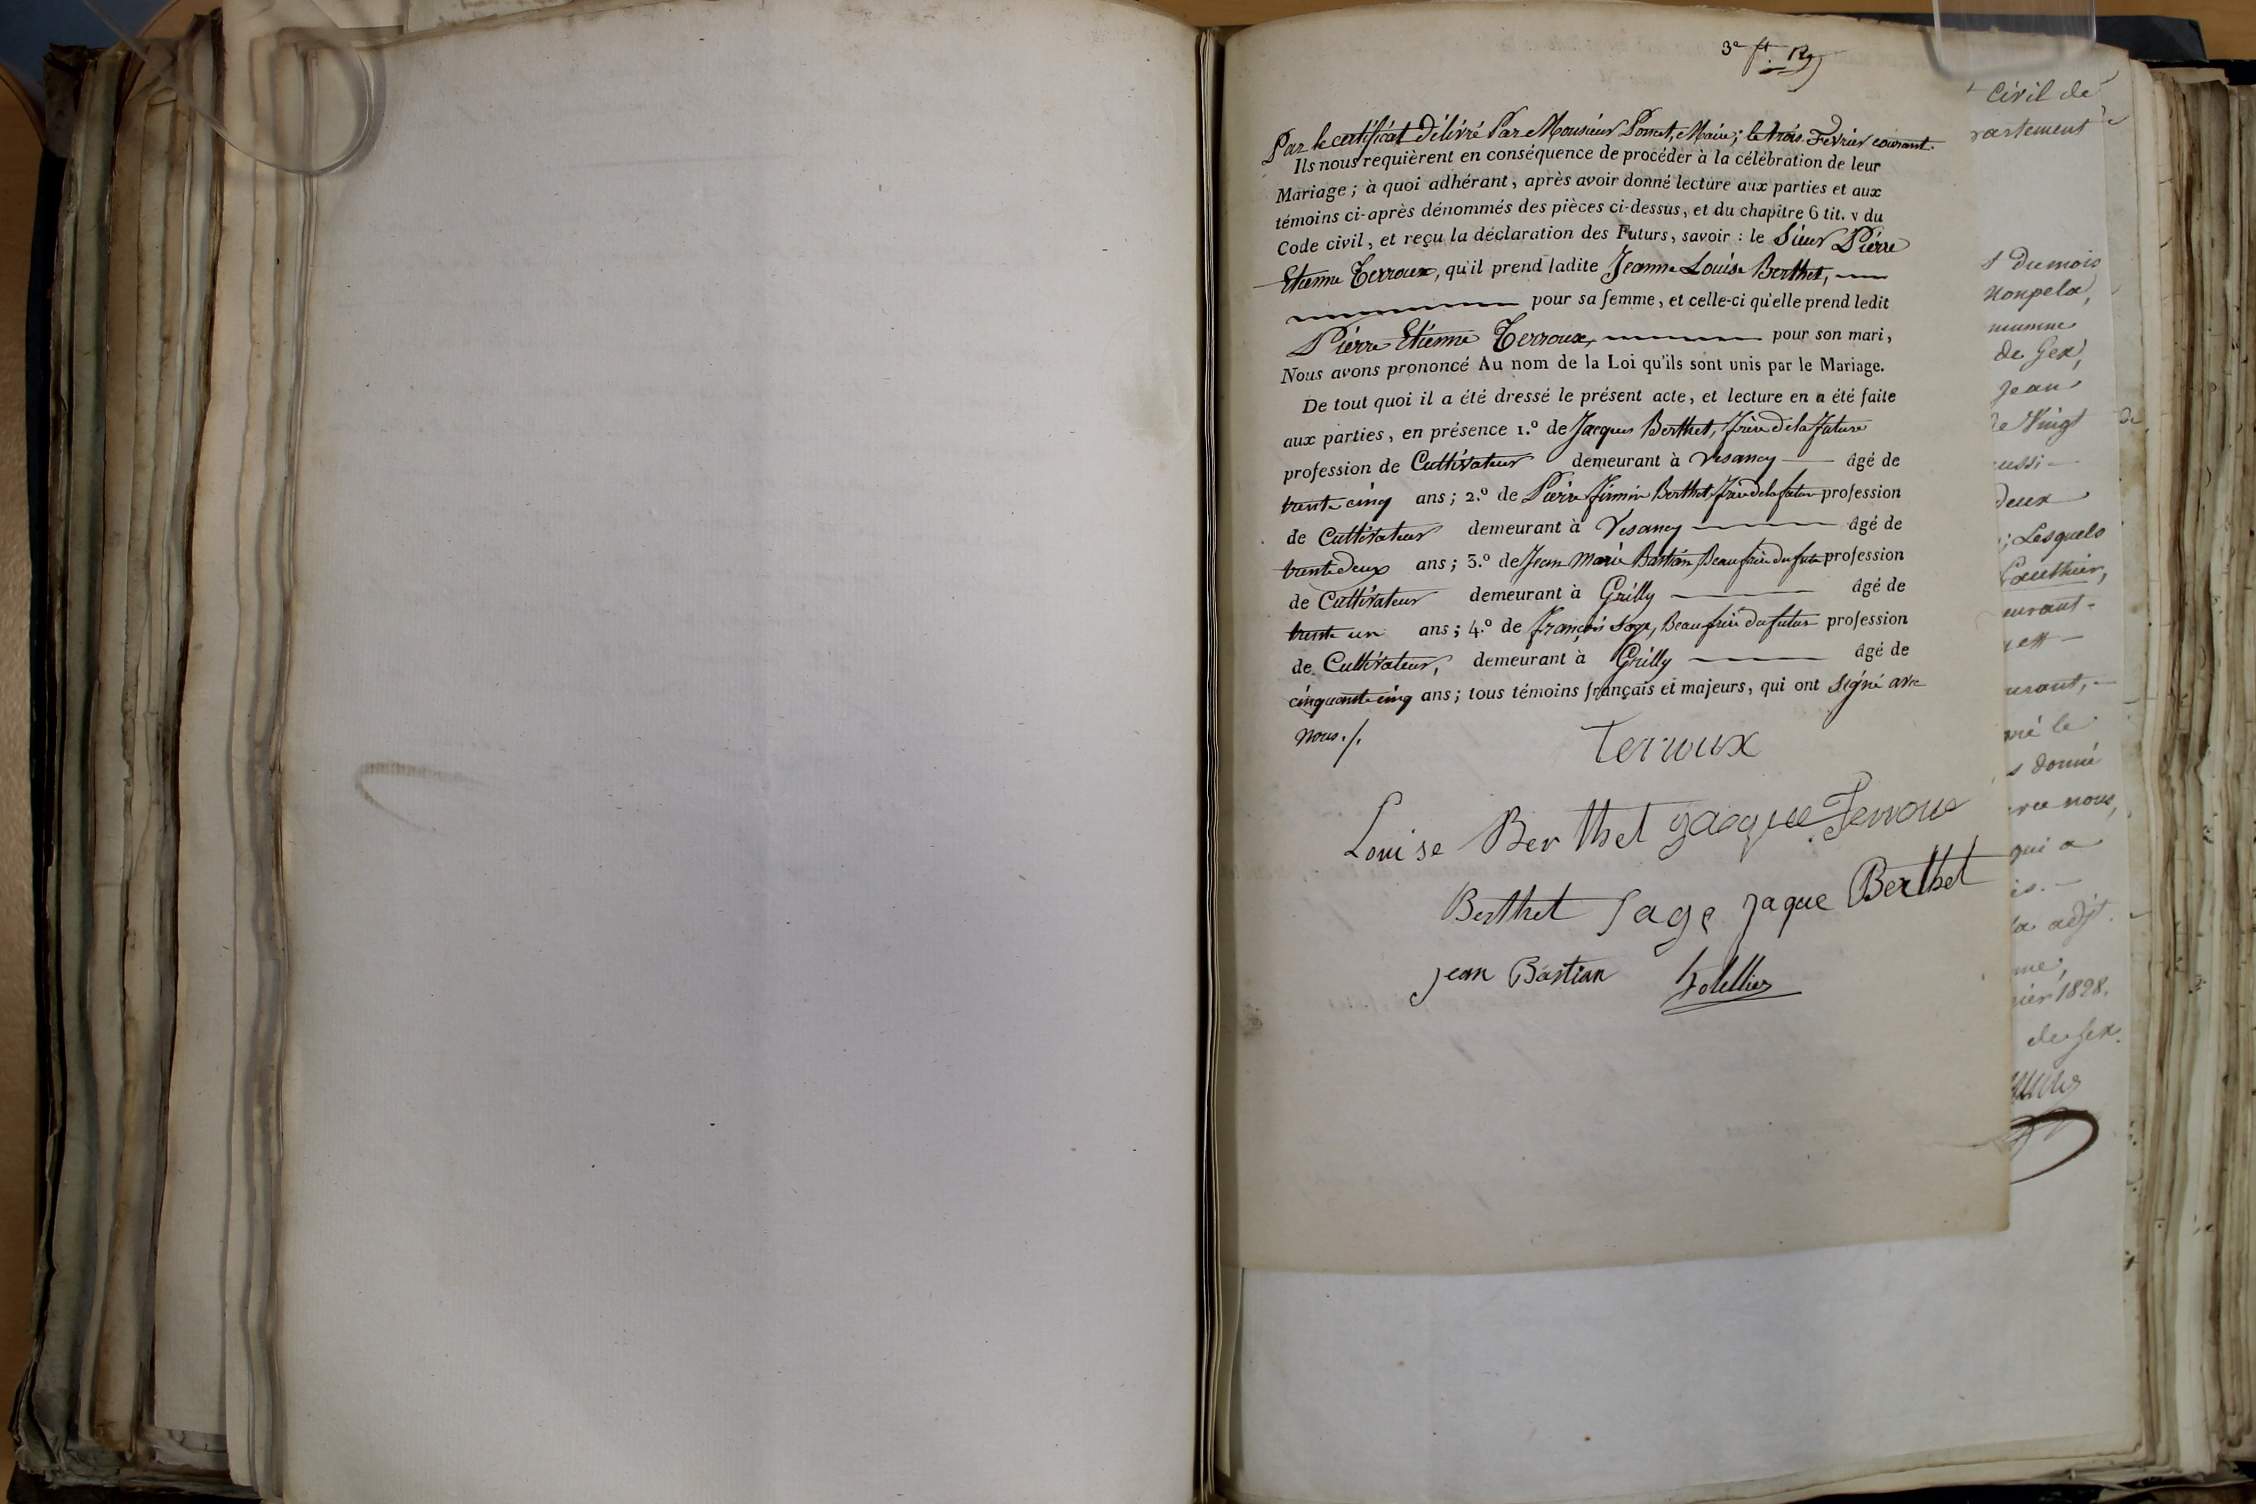 3e ft.
Par le certificat délivré Par Monsieur Poncet, Maire; le trois Février courant.
Ils nous requièrent en conséquence de procéder à la célébration de leur
Mariage; à quoi adhérant, après avoir donné lecture aux parties et aux
témoins ci-après dénommés des pièces ci-dessus, et du chapitre 6 tit. v du
Code civil, et reçu la déclaration des Futurs, savoir : le Sieur Pierre
Etienne Terroux, qu'il prend ladite Jeanne Louise Berthet,
pour sa femme, et celle-ci qu'elle prend ledit
Pierre Etienne Terroux, pour son mari,
Nous avons prononcé Au nom de la Loi qu'ils sont unis par le Mariage.
De tout quoi il a été dressé le présent acte, et lecture en a été faite
aux parties, en présence 1.º de Jacques Berthet, frère de la future
profession de Cultivateur demeurant à Vesancy — âgé de
trente cinq ans; 2.º de Pierre Firmin Berthet, frère de la future profession
de Cultivateur demeurant à Vesancy — âgé de
trente deux ans; 3.º de Jean Marie Bastian, Beau frère du futur profession
de Cultivateur demeurant à Grilly — âgé de
trente un ans; 4.º de François Sage, Beau frère du futur profession
de Cultivateur, demeurant à Grilly — âgé de
cinquante cinq ans; tous témoins français et majeurs, qui ont signé avec
nous./.
Terroux
Louise Berthet Jacque Terroux
Berthet Sage Jaque Berthet
jean Bastian
civil de
partement
s du mois
Nonpela,
mumne
de Gex,
Jean
de Vingt
de
aussi —
deux
; Lesquels
Gauthier,
ourant -
ett —
urant, —
mé le
s donné
vec nous,
qui a
is. —
la adjt.
me,
rier 1828.
de Gex.